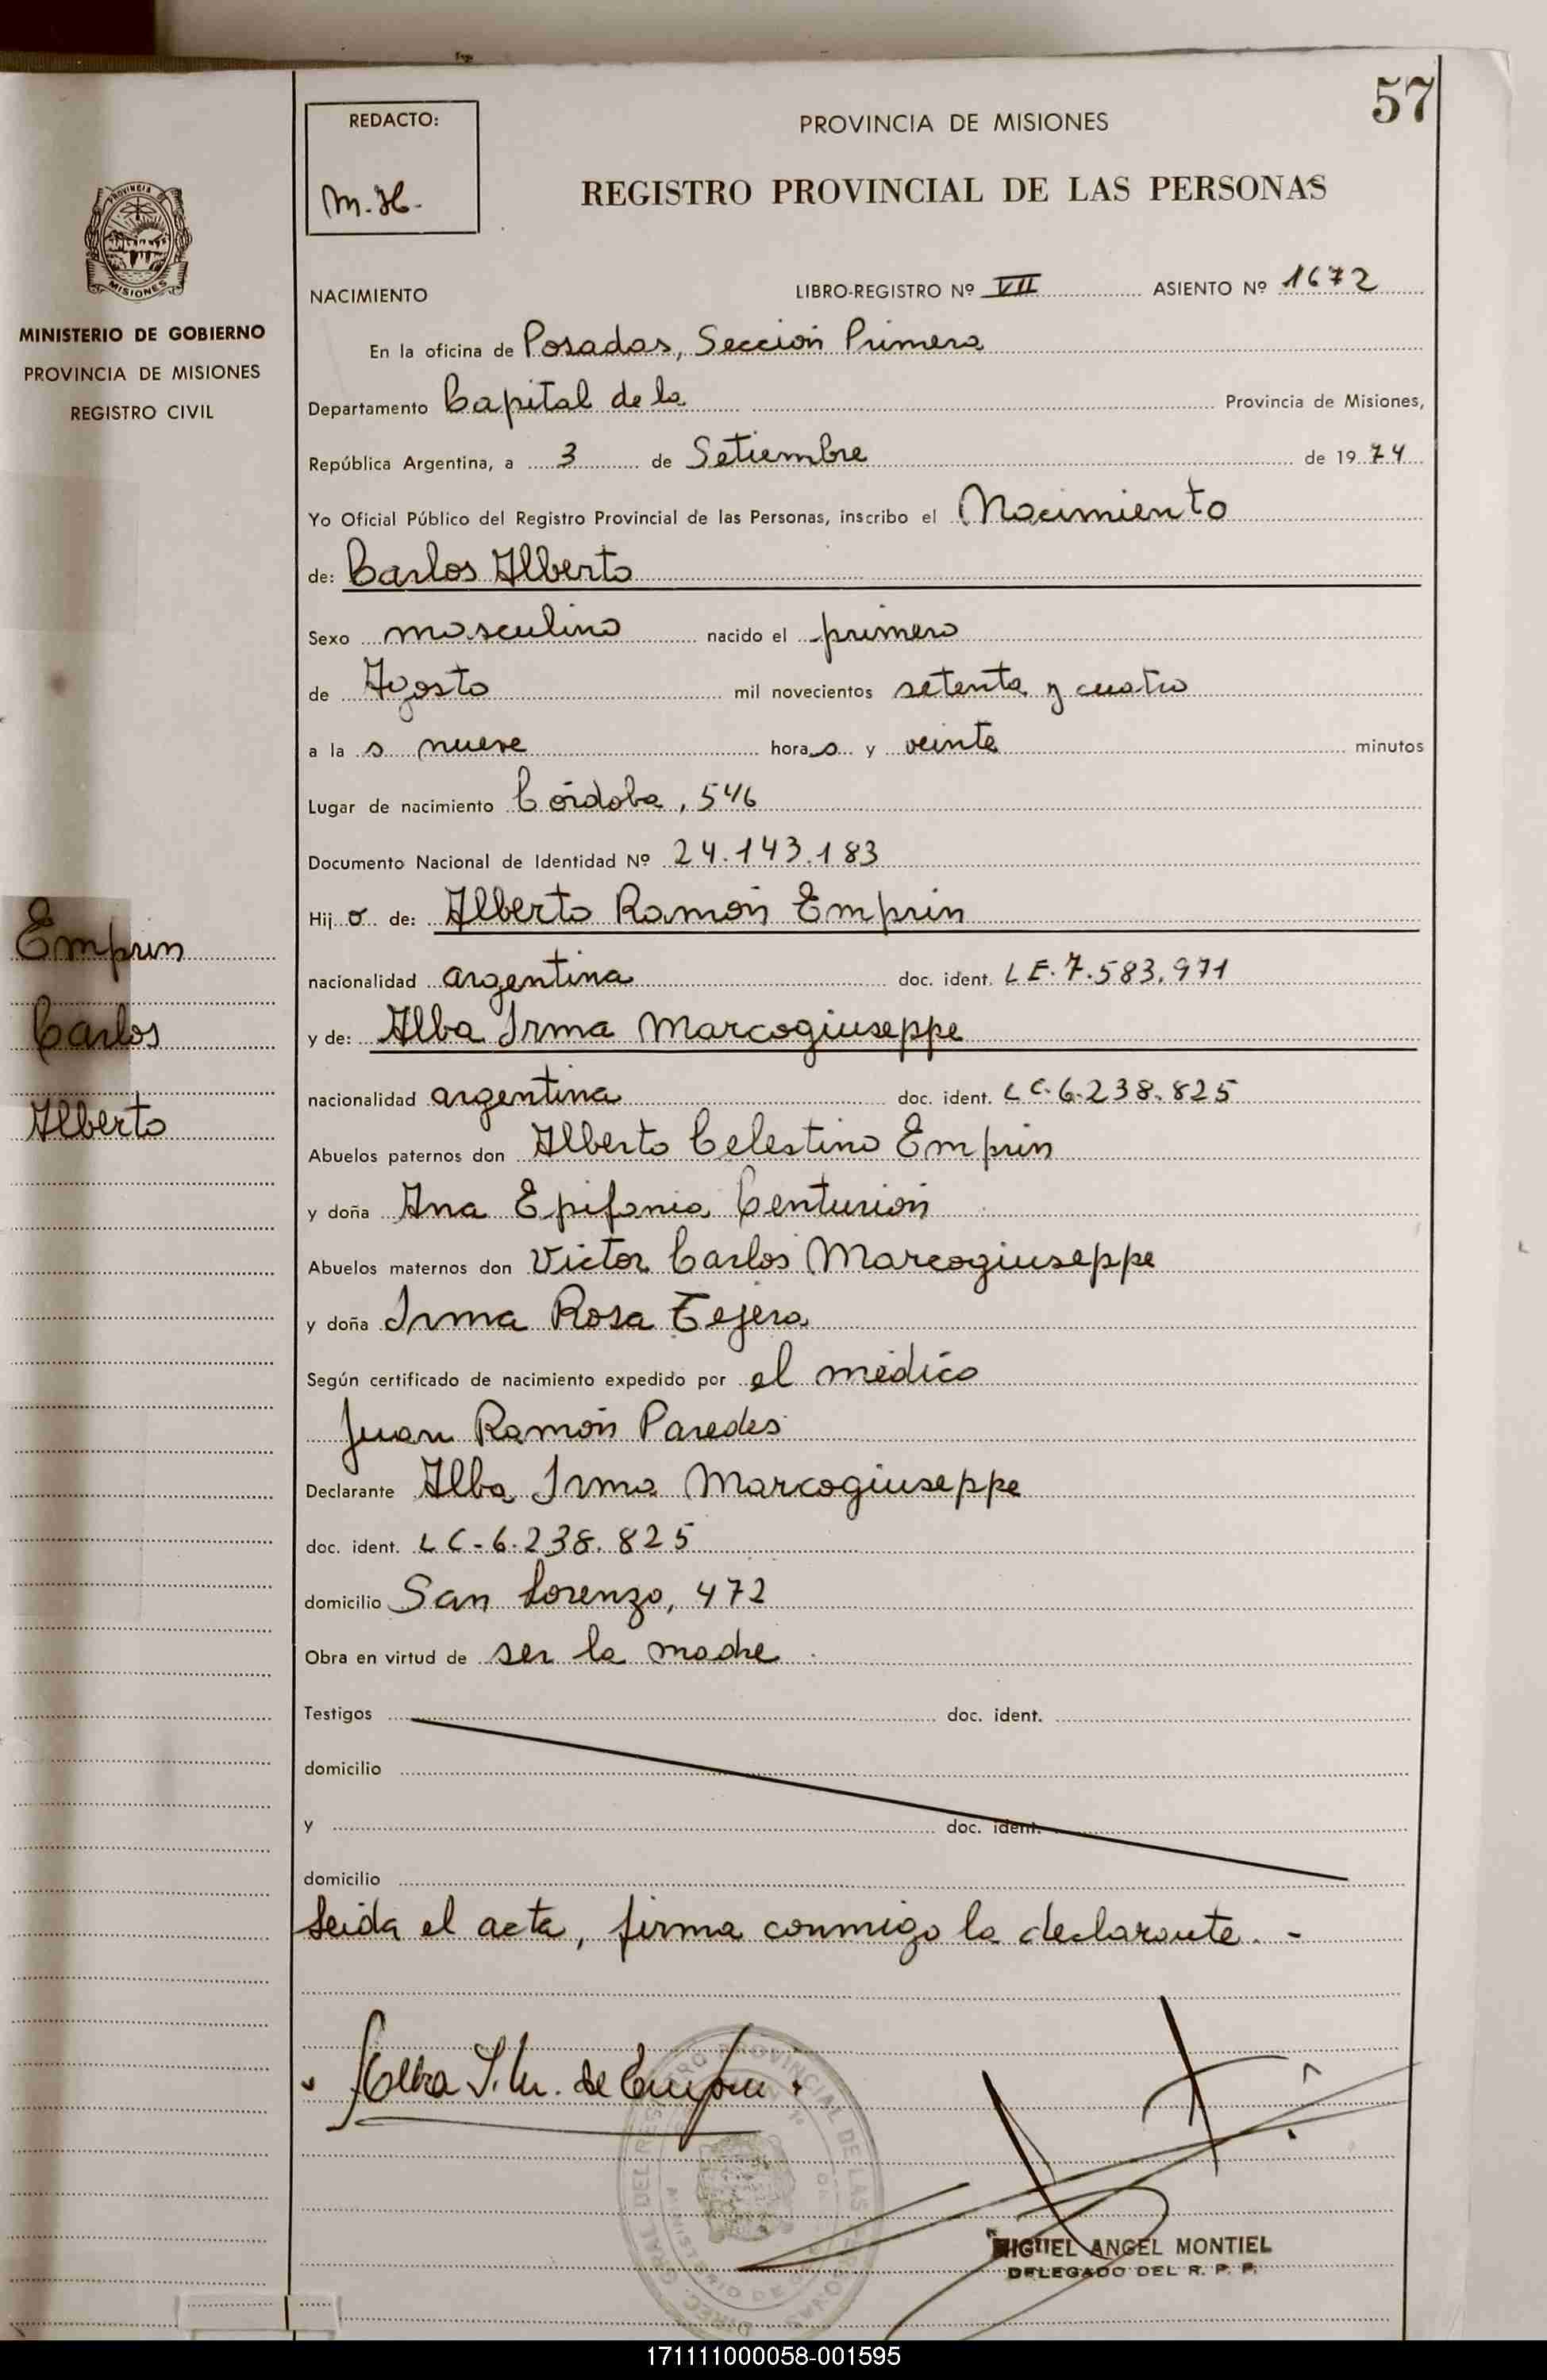 57
REDACTO:
M.H.
PROVINCIA DE MISIONES
REGISTRO PROVINCIAL DE LAS PERSONAS
PROVINCIA
MISIONES
MINISTERIO DE GOBIERNO
PROVINCIA DE MISIONES
REGISTRO CIVIL
NACIMIENTO LIBRO-REGISTRO Nº VII ASIENTO Nº 1672
En la oficina de Posadas, Sección Primera
Departamento Capital de la Provincia de Misiones,
República Argentina, a 3 de Setiembre de 1974
Yo Oficial Público del Registro Provincial de las Personas, inscribo el Nacimiento
de: Carlos Alberto
Sexo masculino nacido el primero
de Agosto mil novecientos setenta y cuatro
a la s nueve hora s y veinte minutos
Lugar de nacimiento Córdoba, 546
Documento Nacional de Identidad Nº 24.143.183
Hij o de: Alberto Ramón Emprin
nacionalidad argentina doc. ident. LE.7.583.971
y de: Alba Irma Marcogiuseppe
nacionalidad argentina doc. ident. LC.6.238.825
Abuelos paternos don Alberto Celestino Emprin
y doña Ana Epifania Centurión
Abuelos maternos don Victor Carlos Marcogiuseppe
y doña Irma Rosa Tejera
Según certificado de nacimiento expedido por el médico
Juan Ramón Paredes
Declarante Alba Irma Marcogiuseppe
doc. ident. LC-6.238.825
domicilio San Lorenzo, 472
Obra en virtud de ser la madre.
Testigos doc. ident.
domicilio
y doc. ident.
domicilio
Leida el acta, firma conmigo la declarante.-
Emprin
Carlos
Alberto
Alba I. M. de Emprin
MIGUEL ANGEL MONTIEL
DELEGADO DEL R. P. P.
171111000058-001595